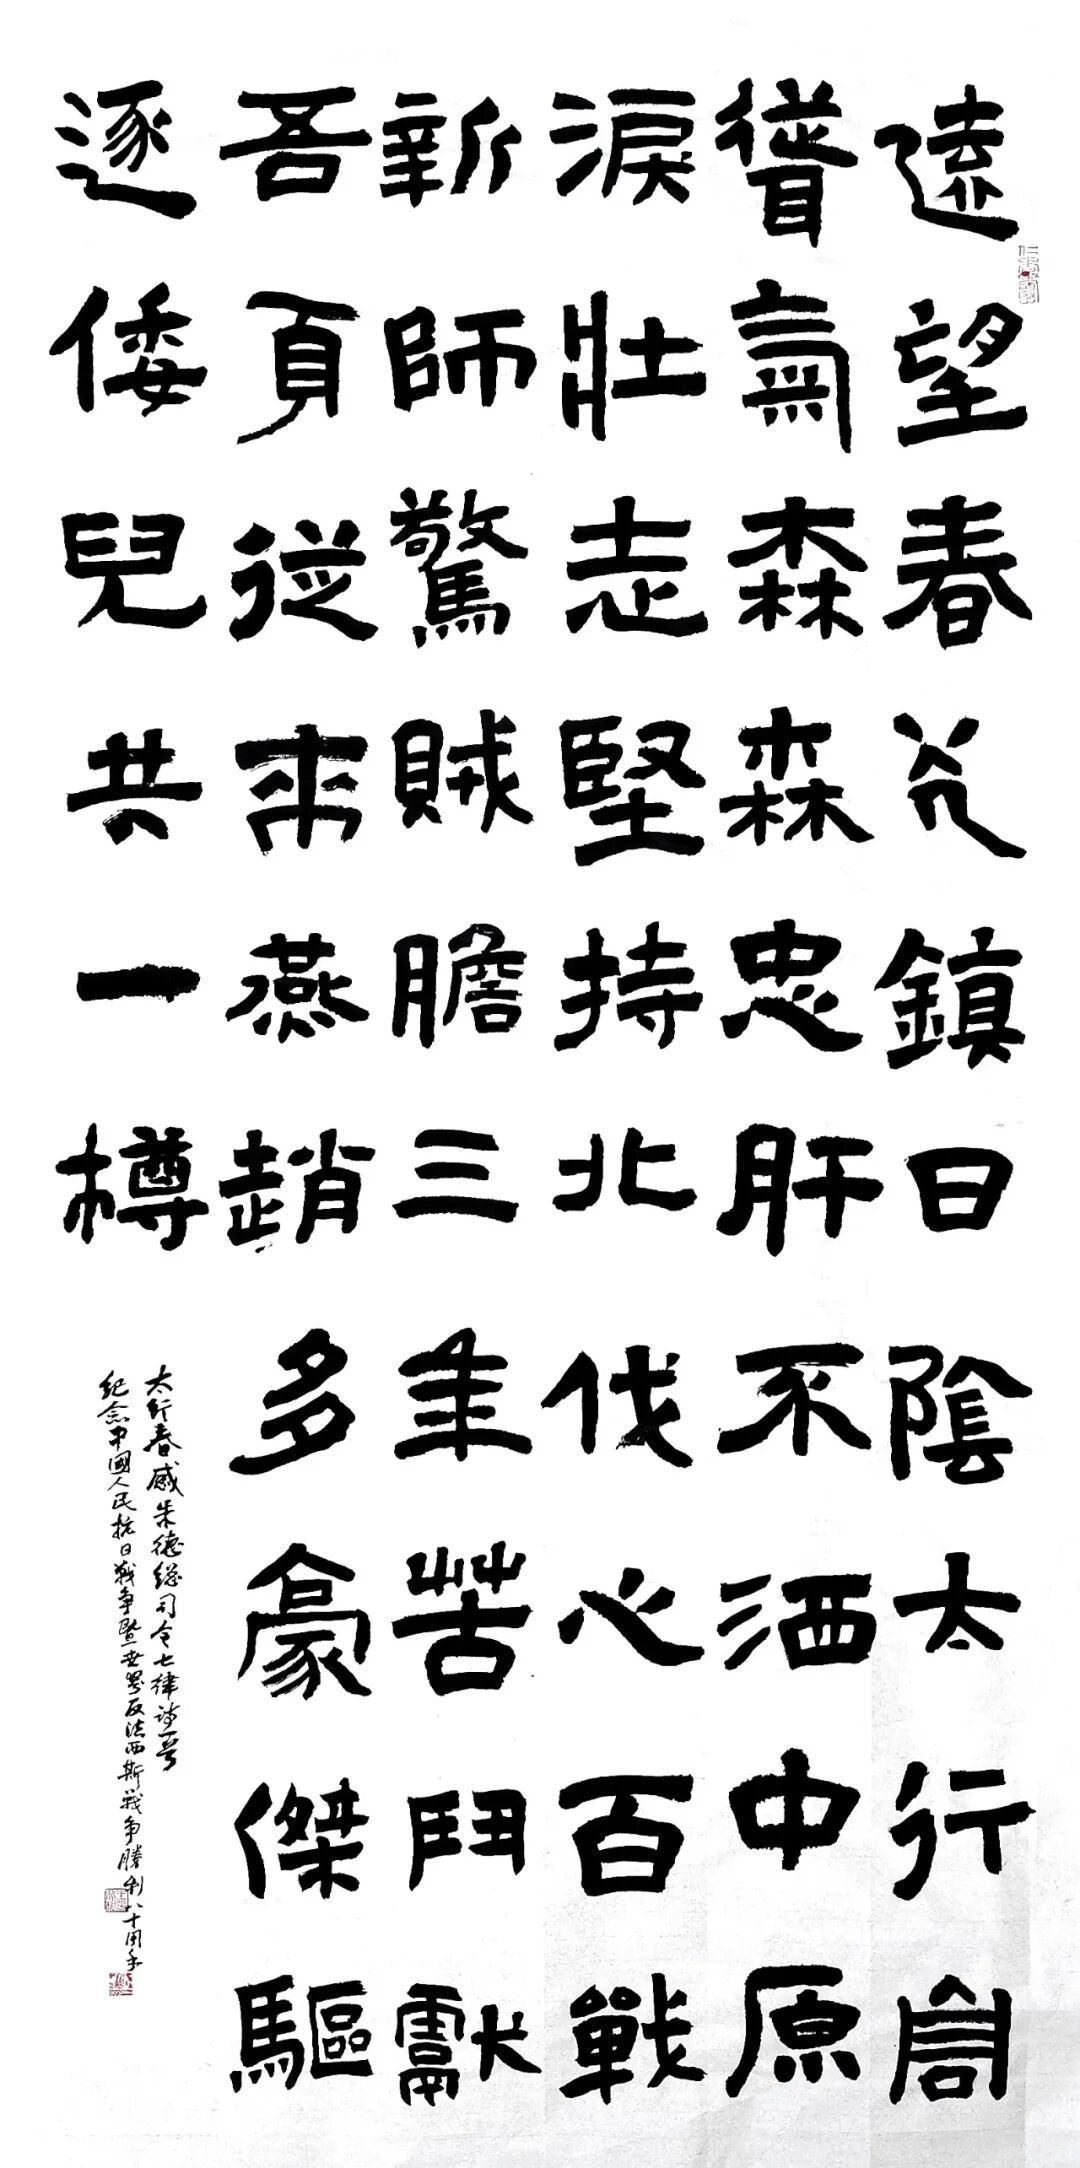 遠望春光鎮日陰太行高
聳氣森森忠肝不洒中原
淚壯志堅持北伐心百戰
新師驚賊膽三年苦鬥獻
吾身從來燕趙多豪傑驅
逐倭兒共一樽
太行春感朱德總司令七律詩一首
紀念中國人民抗日戰争暨世界反法西斯戰争勝利八十周年